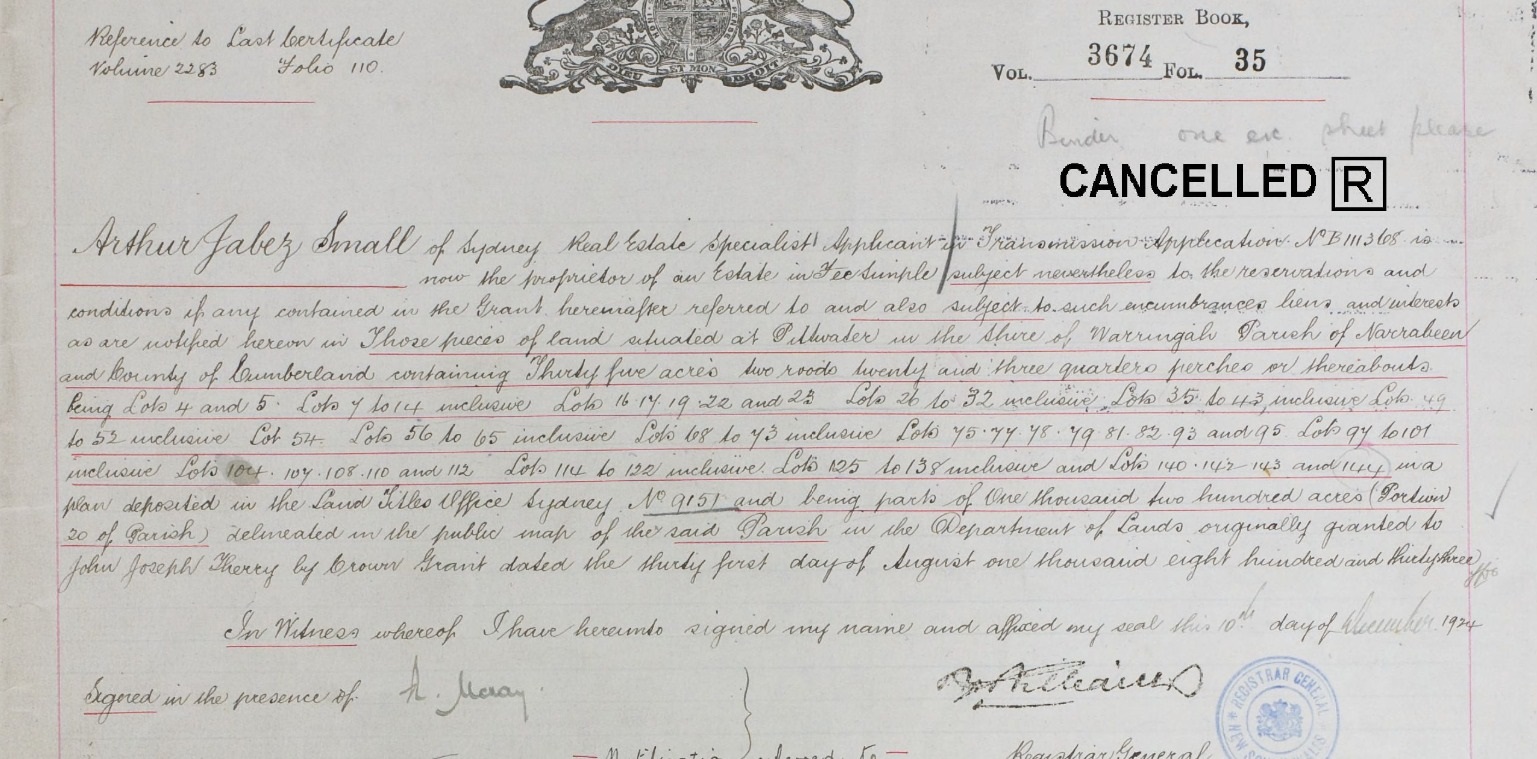 Reference to Last Certificate
Volume 2283 Folio 110.
DIEU ET MON DROIT
REGISTER BOOK,
VOL. 3674 FOL. 35
one please
CANCELLED R
Arthur Jabez Small of Sydney Real Estate Specialist Applicant in Transmission Application No B111368 is
now the proprietor of an Estate in Fee Simple subject nevertheless to the reservations and
conditions if any contained in the Grant hereinafter referred to and also subject to such encumbrances liens and interests
as are notified hereon in Those pieces of land situated at Pittwater in the Shire of Warringah Parish of Narrabeen
and County of Cumberland containing Thirty five acres two roods twenty and three quarters perches or thereabouts
being Lots 4 and 5. Lots 7 to 14 inclusive Lots 16.17.19.22 and 23 Lots 26 to 32 inclusive Lots 35 to 43 inclusive Lots 49
to 52 inclusive Lot 54. Lots 56 to 65 inclusive Lots 68 to 73 inclusive Lots 75.77.78.79.81.82.93 and 95 Lots 97 to 101
inclusive Lots 104.107.108.110 and 112 Lots 114 to 122 inclusive. Lots 125 to 138 inclusive and Lots 140.142 143 and 144 in a
plan deposited in the Land Titles Office Sydney No 9151 and being parts of One thousand two hundred acres (Portion
20 of Parish) delineated in the public map of the said Parish in the Department of Lands originally granted to
John Joseph Therry by Crown Grant dated the thirty first day of August one thousand eight hundred and thirty three
In Witness whereof I have hereunto signed my name and affixed my seal this 10th day of December 1924
Signed in the presence of
REGISTRAR GENERAL
NEW SOUTH WALES
Notification referred to
Registrar General